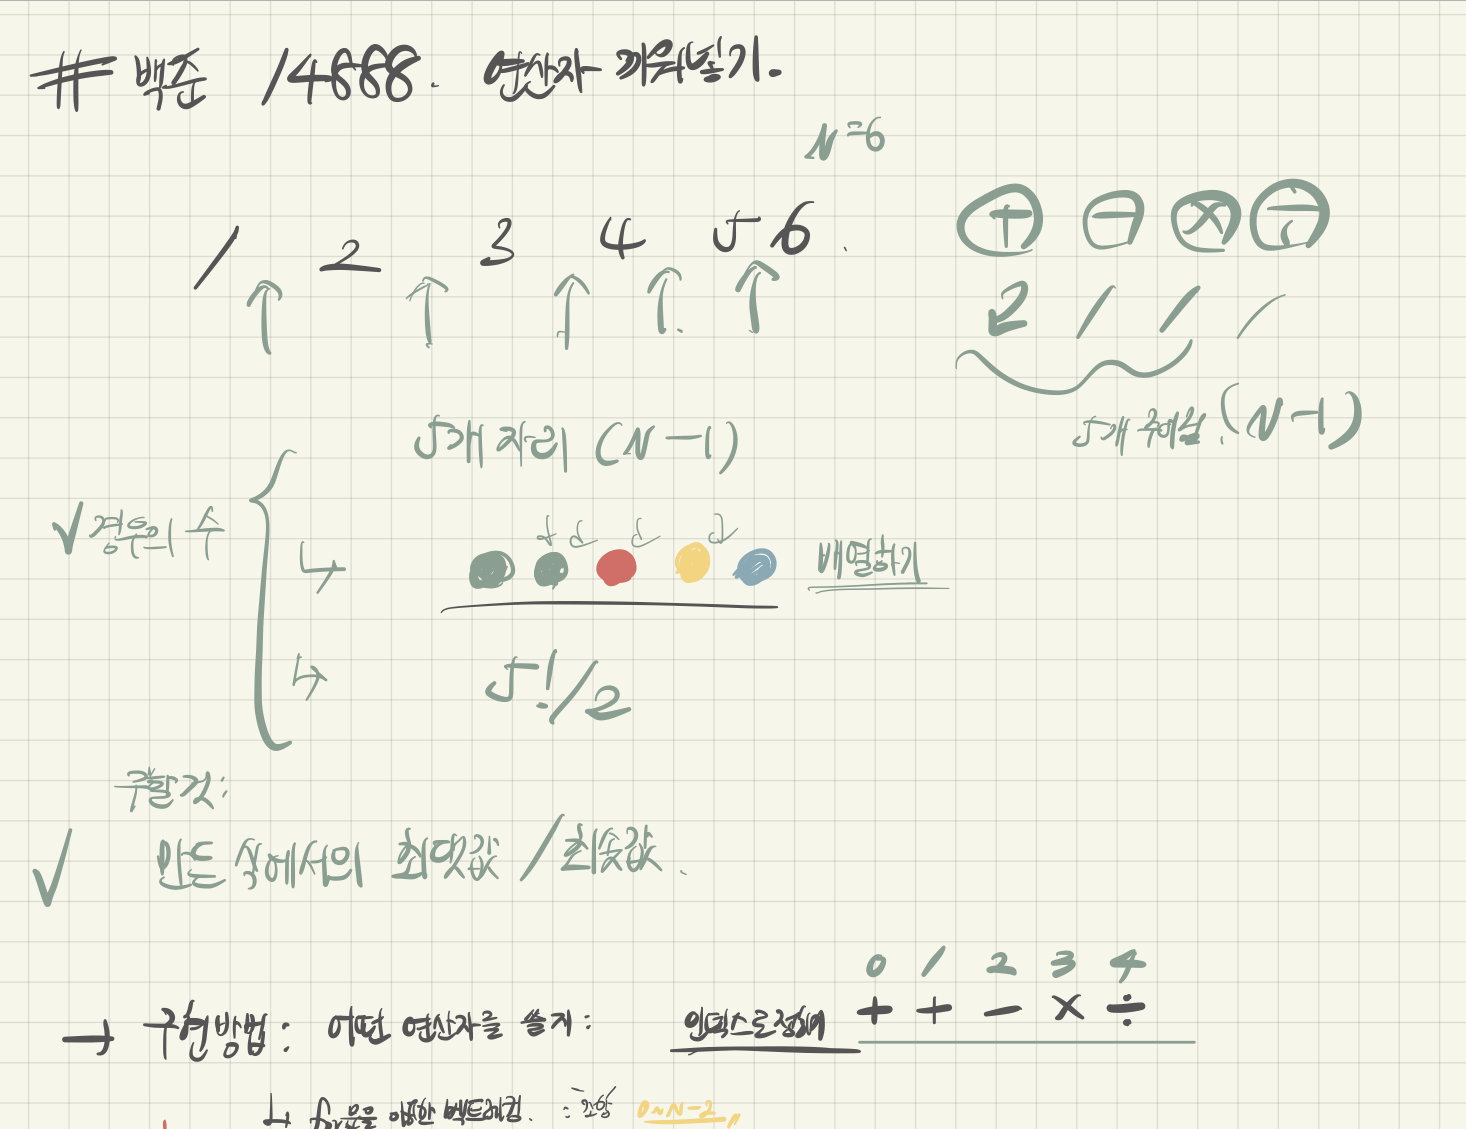 # 백준 14888. 연산자 끼워넣기.
N=6
1 2 3 4 5 6
+ - × ÷
2 1 1 1
5개 자리 (N-1)
5개 주어짐. (N-1)
경우의 수
배열하기
5!/2
구할것:
만든 식에서의 최댓값 / 최솟값.
0 1 2 3 4
+ + - × ÷
→ 구현방법: 어떤 연산자를 쓸지: 인덱스로 정하여
0~N-2